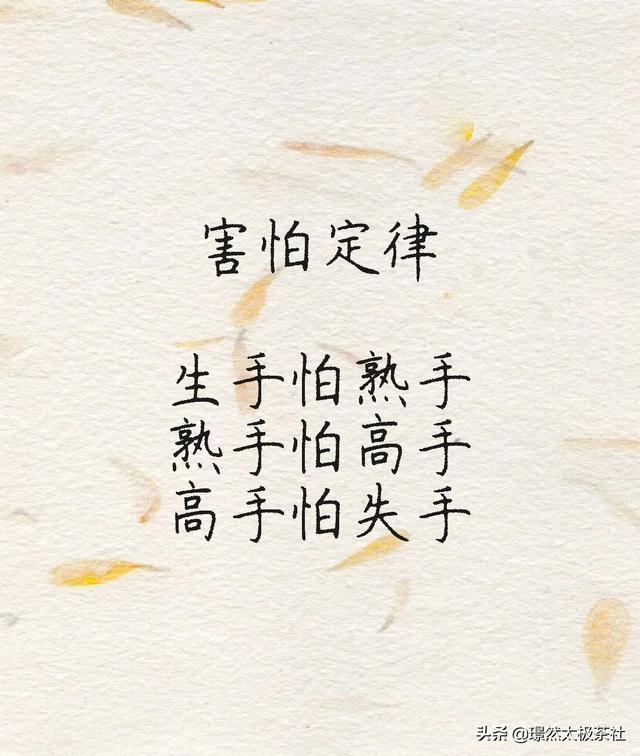 害怕定律
生手怕熟手
熟手怕高手
高手怕失手
头条 @璟然太极茶社